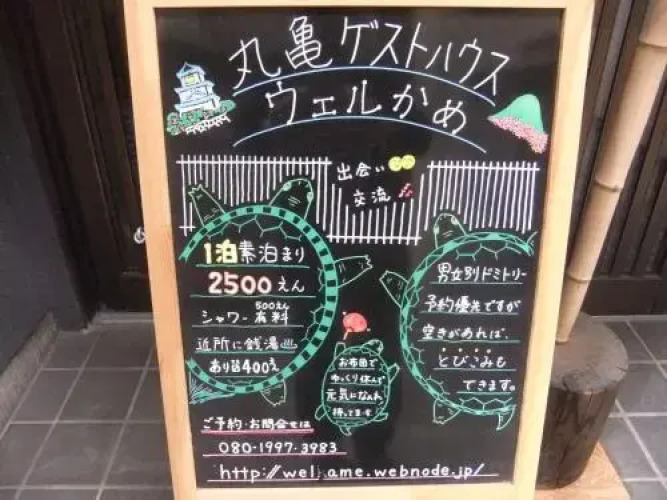 丸亀ゲストハウス
ウェルかめ
出会い
交流
1泊素泊まり
2500えん
500えん
シャワー有料
近所に銭湯♨
あり〼400え
男女別ドミトリー
予約優先ですが
空きがあれば、
とびこみも
できます。
お布団で
ゆっくり休んで
元気になんれ
持ってます
ご予約・お問合せは
080-1997-3983
http://wel
ame.webnode.jp/